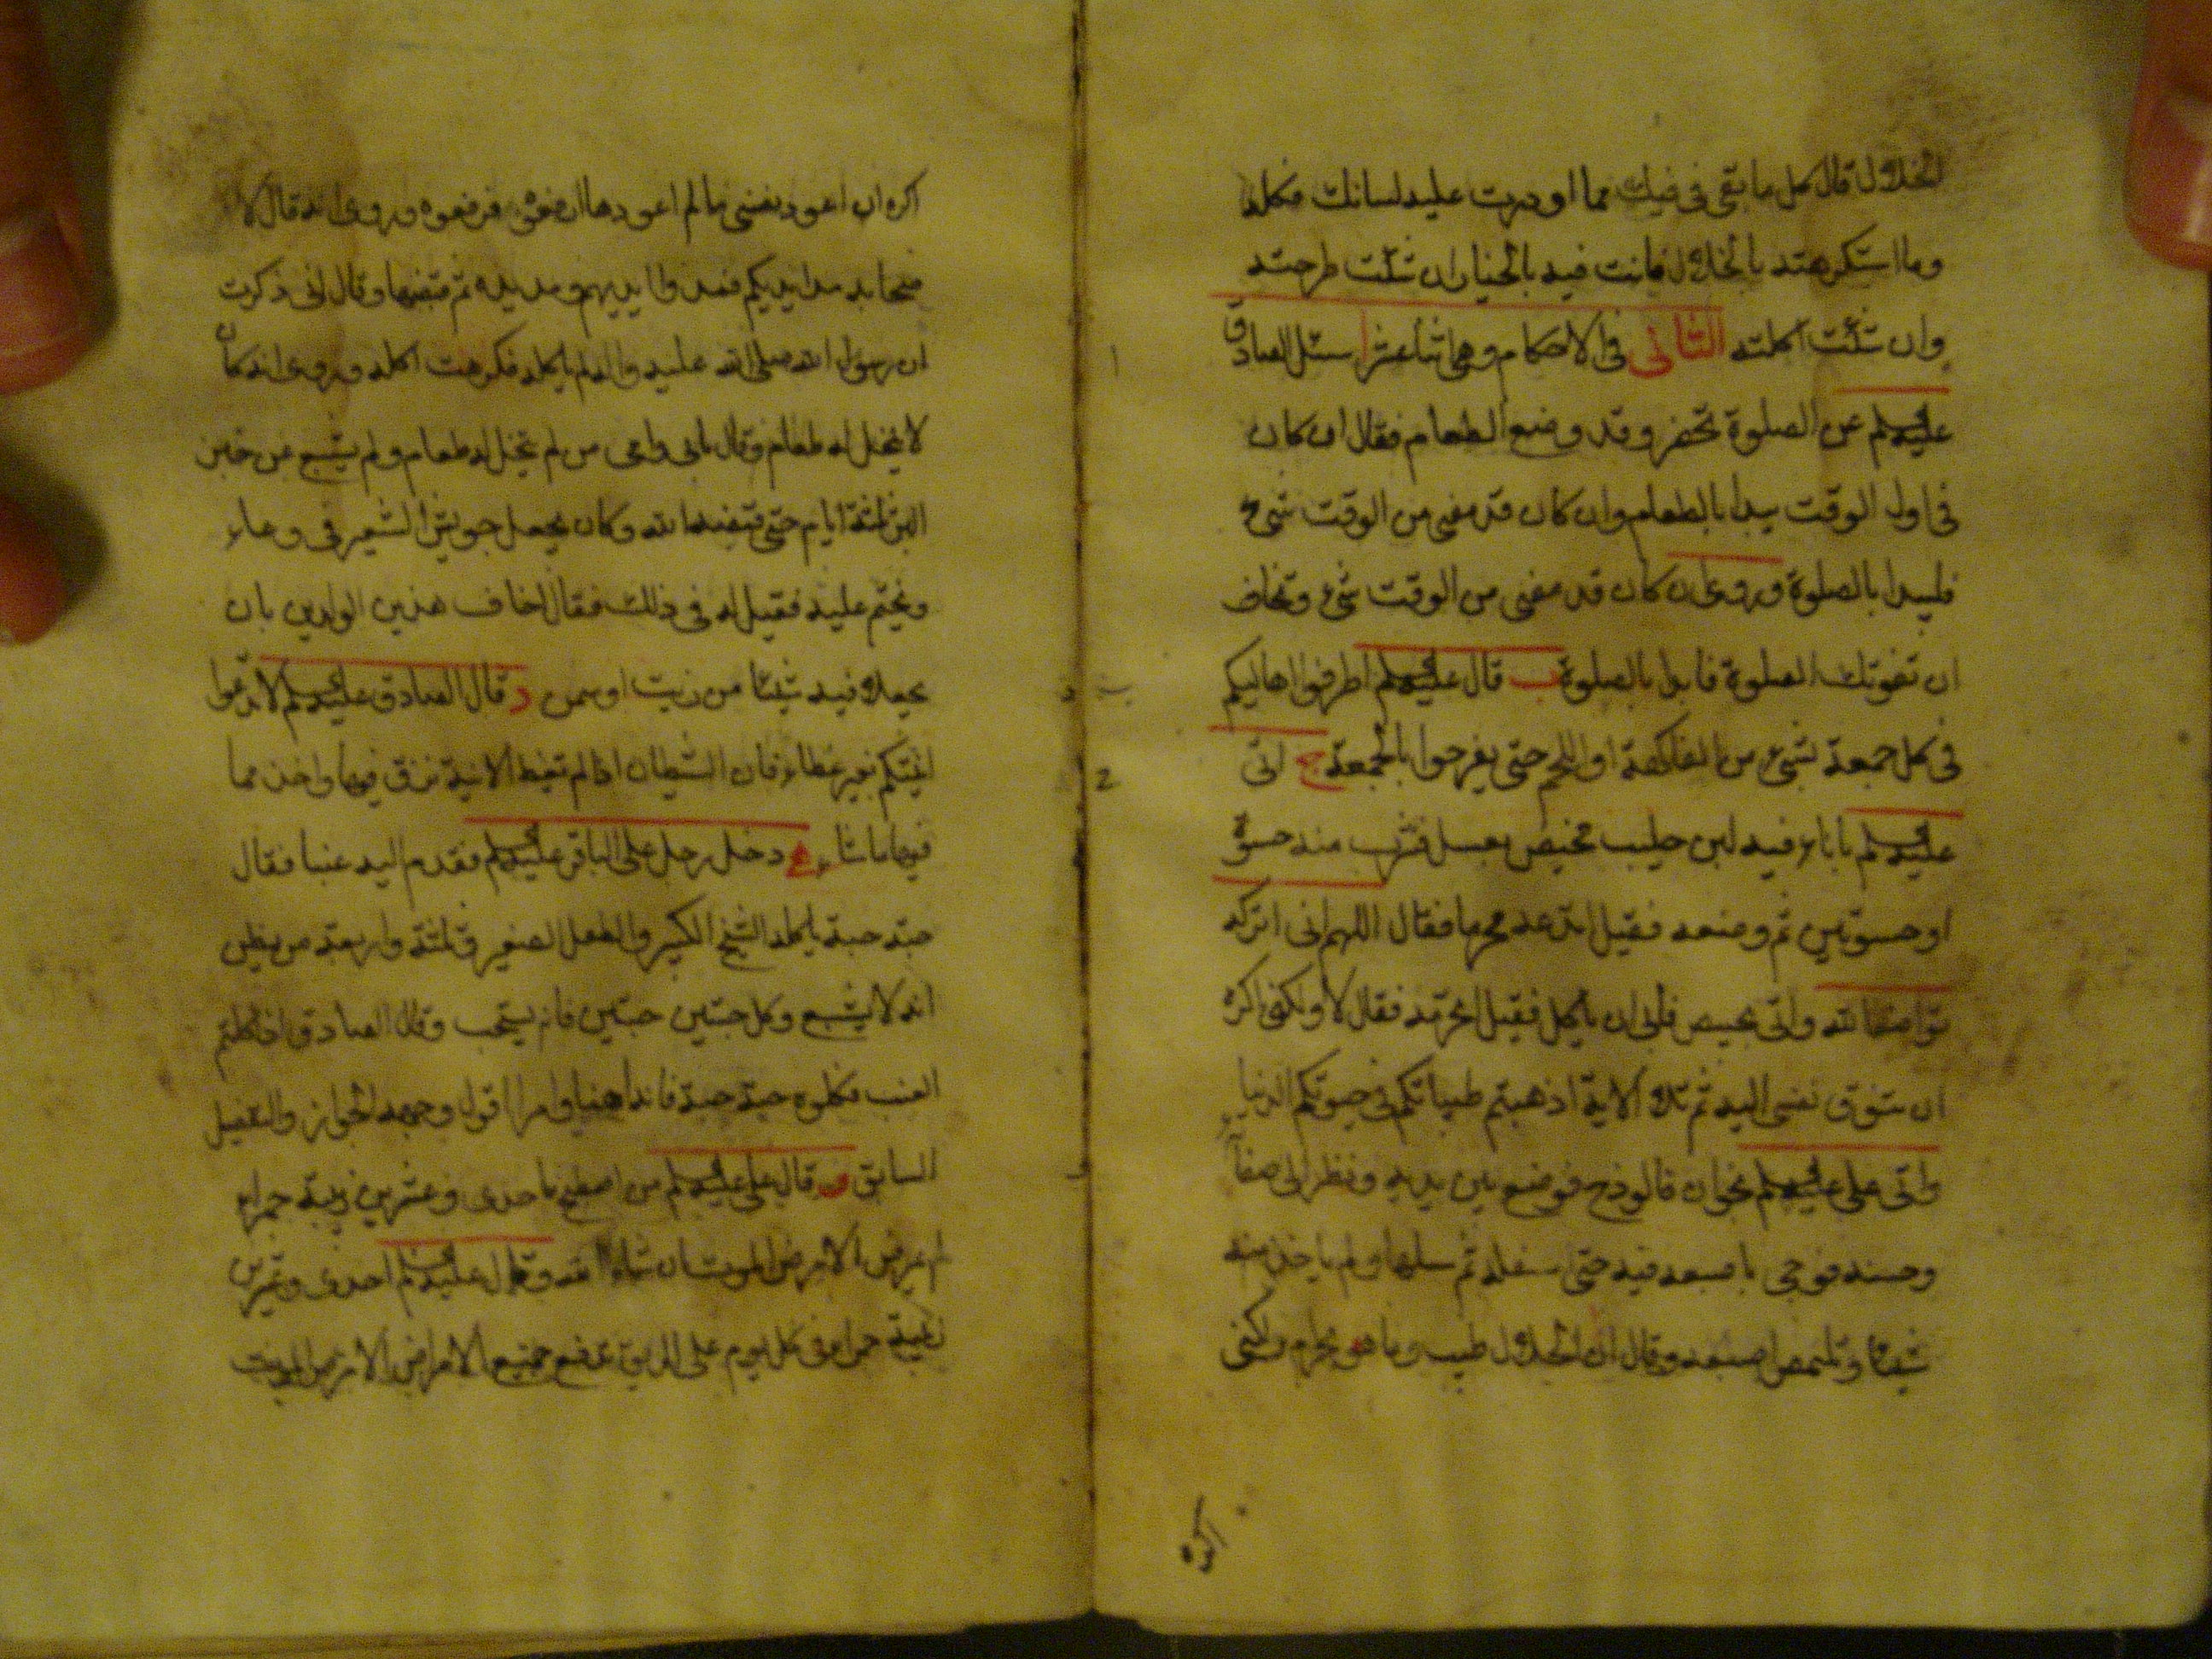 الخلال قال كل ما بقى فى فيك مما ادرت عليه لسانك فكله
وما استكرهته بالخلال فانت فيه بالخيار ان شئت طرحته
وان شئت اكلته الثانى فى الاحكام وهى اثنا عشر ا سئل الصادق
عليه لم عن الصلوة تحضر وقد وضع الطعام فقال ان كان
فى اول الوقت يبدا بالطعام وان كان قد مضى من الوقت شىء
فليبدا بالصلوة وروى ان كان قد مضى من الوقت شىء وتخاف
ان تفوتك الصلوة فابدا بالصلوة ب قال عليه لم اطرفوا اهاليكم
فى كل جمعة بشىء من الفاكهة او اللحم حتى يفرحوا بالجمعة ج اتى
عليه لم باناء فيه لبن حليب مخيض بعسل فشرب منه حسوة
او حسوتين ثم وضعه فقيل اتدعه محرما فقال اللهم انى اتركه
تواضعا لله واتى بخبيص فابى ان ياكل فقيل اتحرمه فقال لا ولكنى اكره
ان تتوق نفسى اليه ثم تلا الاية اذهبتم طيباتكم فى حيوتكم الدنيا
واتى على عليه لم بخوان فالوذج فوضع بين يديه ونظر الى صفائه
وحسنه فوجى باصبعه فيه حتى سفله ثم سلها ولم ياخذ منه
شيئا وتلمص اصبعه وقال ان الحلال طيب وما هو بحرام ولكنى
اكره
اكره ان اعود نفسى ما لم اعودها ارفعوه فرفعوه وروى انه قال لا
صحابه مدا ايديكم فمدوا ايديهم ومد يده ثم قبضها وقال انى ذكرت
ان رسول الله صلى الله عليه واله لم ياكله فكرهت اكله وروى انه كان
لا ينخل له طعام وقال بابى وامى من لم ينخل له طعام ولم يشبع من خبز
البر ثلثة ايام حتى قبضه الله وكان يجعل جريش الشعير فى وعاء
ويختم عليه فقيل له فى ذلك فقال اخاف هذين الولدين بان
يجعلا فيه شيئا من زيت او سمن د قال الصادق عليه لم لا تدعوا
انيتكم بغير غطاء فان الشيطان اذا لم تغط الانية بزق فيها واخذ مما
فيها ما شاء ه دخل رجل على الباقر عليه لم فقدم اليه عنبا فقال
حبة حبة ياكله الشيخ الكبير والطفل الصغير وثلثة واربعة من يظن
انه لا يشبع وكل حبتين حبتين فانه يستحب وقال الصادق اذا اكلتم
العنب فكلوه حبة حبة فانه اهنا وامرا اقول وجهه الجواز والتفصيل
السابق و قال على عليه لم من اصطبح باحدى وعشرين زبيبة حمراء
لم يمرض الا مرض الموت ان شاء الله وقال عليه لم احدى وعشرين
زبيبة حمراء فى كل يوم على الريق تدفع جميع الامراض الا مرض الموت